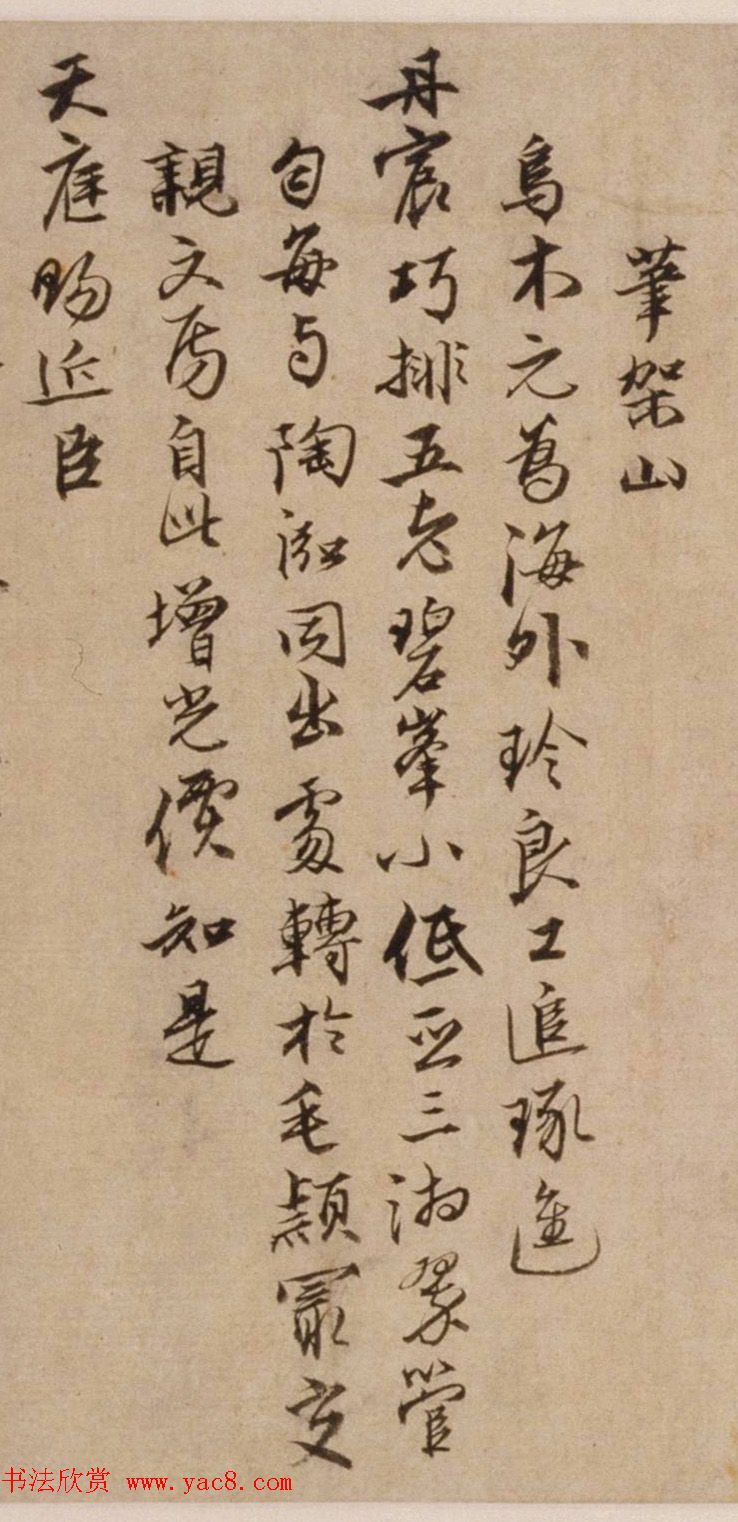 筆架山
烏木元爲海外珍良工追琢進
丹宸巧排五老碧峯小低亞三湘翠管
勻每與陶泓同出處轉於毛穎最交
親文房自此增光價知是
天庭賜近臣
书法欣赏 www.yac8.com